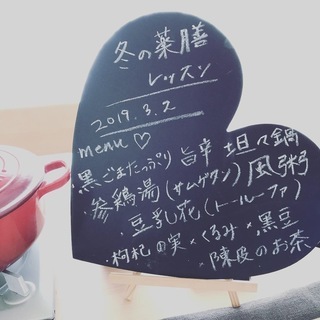 冬の薬膳
レッスン
2019.3.2
menu♡
・黒ごまたっぷり 旨辛 坦々鍋
・参鶏湯(サムゲタン)風粥
・豆乳花(トールーファ)
・枸杞の実×くるみ×黒豆
×陳皮のお茶